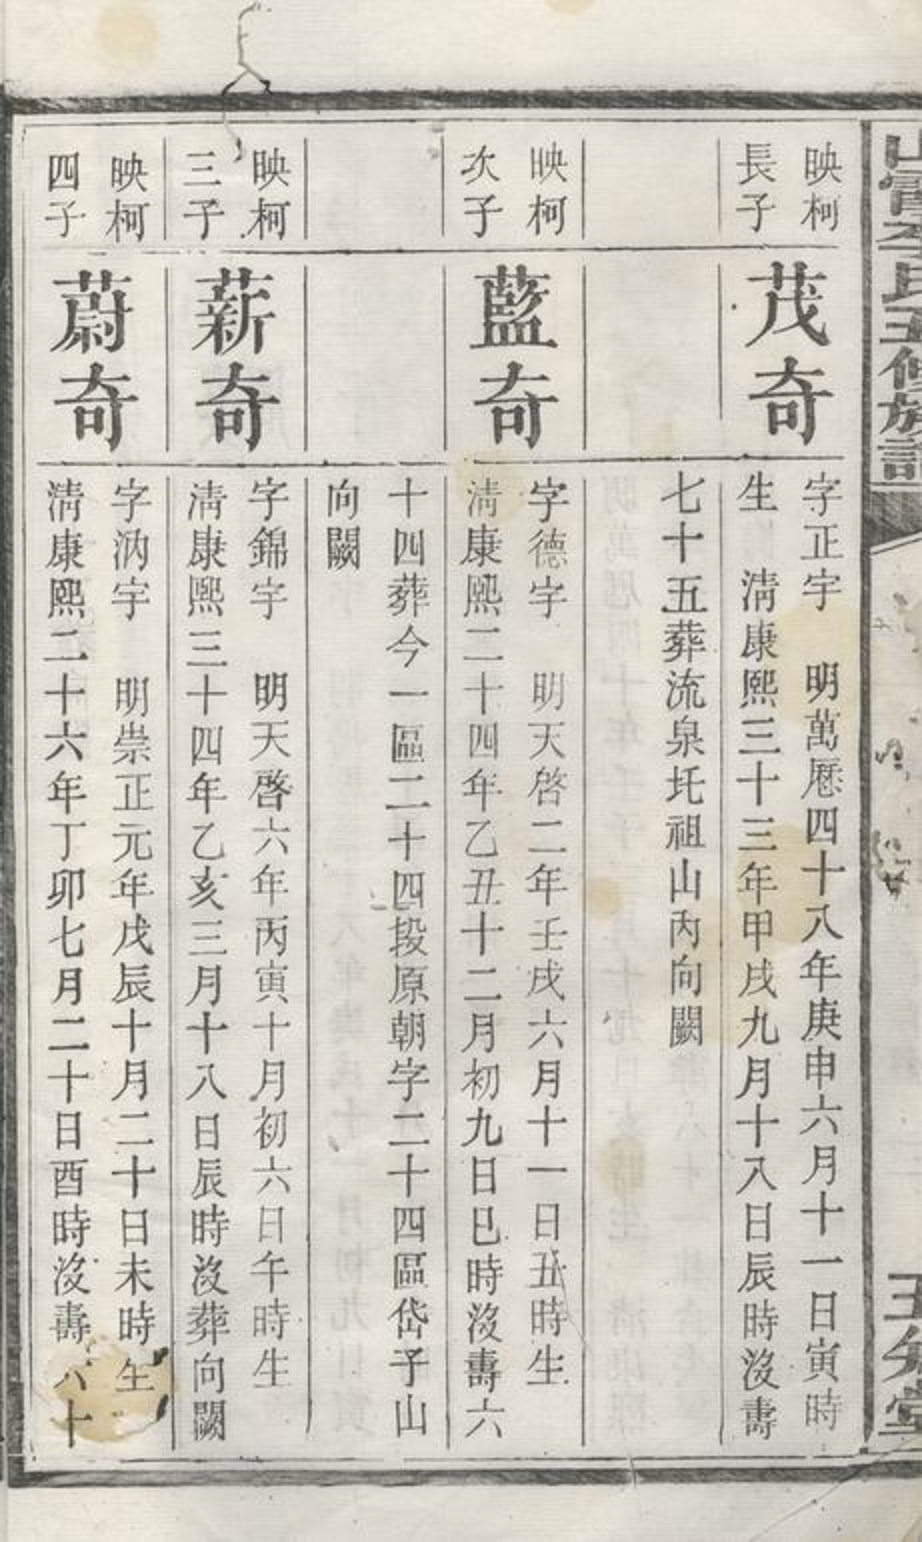 李氏五修族譜
映柯
長子
茂奇
字正宇　明萬厯四十八年庚申六月十一日寅時
生　淸康熙三十三年甲戌九月十八日辰時沒壽
七十五葬流泉圫祖山丙向闕
映柯
次子
藍奇
字德宇　明天啓二年壬戌六月十一日丑時生
淸康熙二十四年乙丑十二月初九日巳時沒壽六
十四葬今一區二十四段原朝字二十四區岱子山
向闕
映柯
三子
薪奇
字錦宇　明天啓六年丙寅十月初六日午時生
淸康熙三十四年乙亥三月十八日辰時沒葬向闕
映柯
四子
蔚奇
字汭宇　明崇正元年戊辰十月二十日未時生
淸康熙二十六年丁卯七月二十日酉時沒壽六十